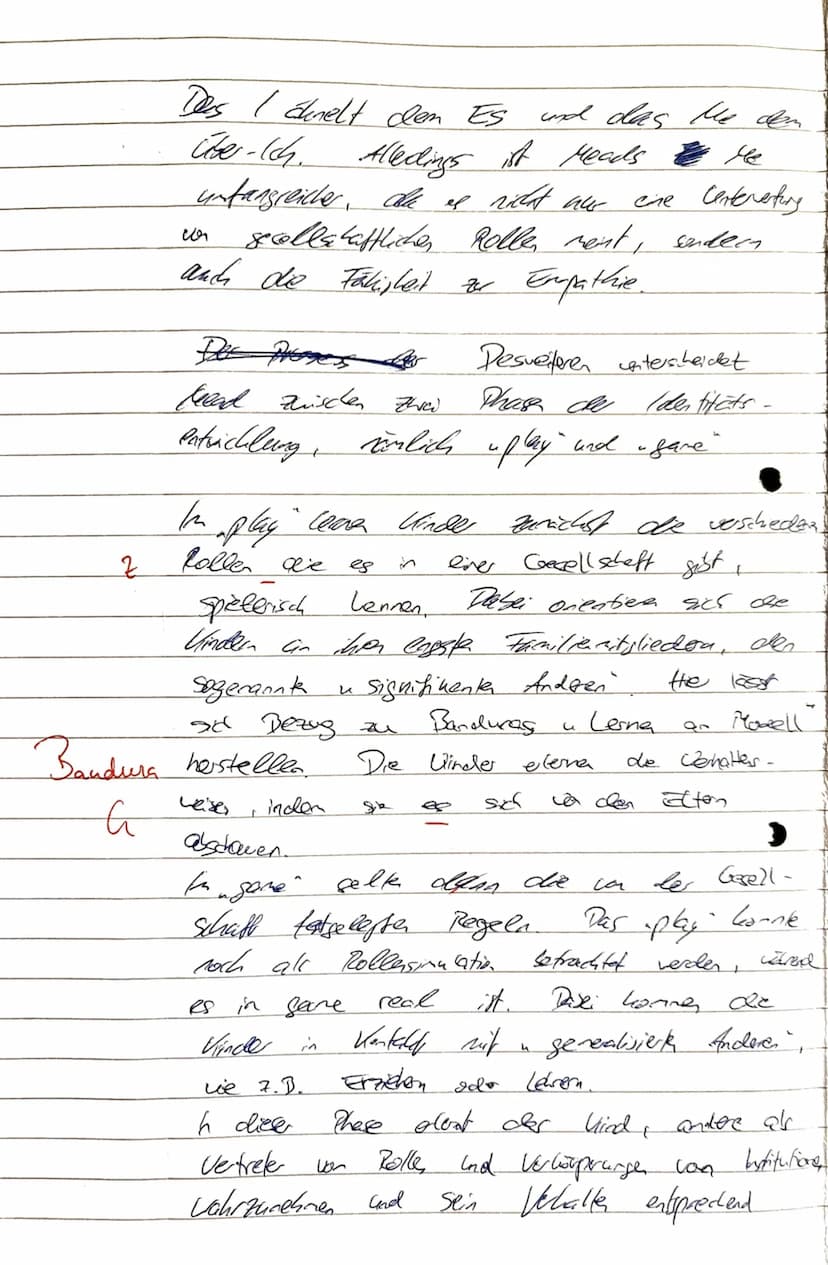 Das I ähnelt dem Es und das Me dem
Über-Ich. Allerdings ist Meads Me
umfangreicher, da es nicht nur eine Unterwerfung
von gesellschaftlichen Rollen meint, sondern
auch die Fähigkeit zur Empathie.
Der Prozess der Desweiteren unterscheidet
Mead zwischen zwei Phasen der Identitäts-
entwicklung, nämlich „play“ und „game“
Im „play“ lernen Kinder zunächst die verschiedenen
Z Rollen die es in einer Gesellschaft gibt,
spielerisch kennen. Dabei orientieren sich die
Kinder an ihren engsten Familienmitgliedern, den
sogenannten „signifikanten Anderen“. Hier lässt
sich Bezug zu Banduras „Lernen am Modell“
Bandura herstellen. Die Kinder erlernen die Verhaltens-
G weisen, indem sie es sich von den Eltern
abschauen.
Im „game“ gelten dann die von der Gesell-
schaft festgelegten Regeln. Das „play“ konnte
noch als Rollensimulation betrachtet werden, während
es in game real ist. Dabei kommen die
Kinder in Kontakt mit „generalisierten Anderen“,
wie z.B. Erziehern oder Lehrern.
In dieser Phase erlernt das Kind, andere als
Vertreter von Rollen und Verkörperungen von Institutionen
wahrzunehmen und sein Verhalten entsprechend